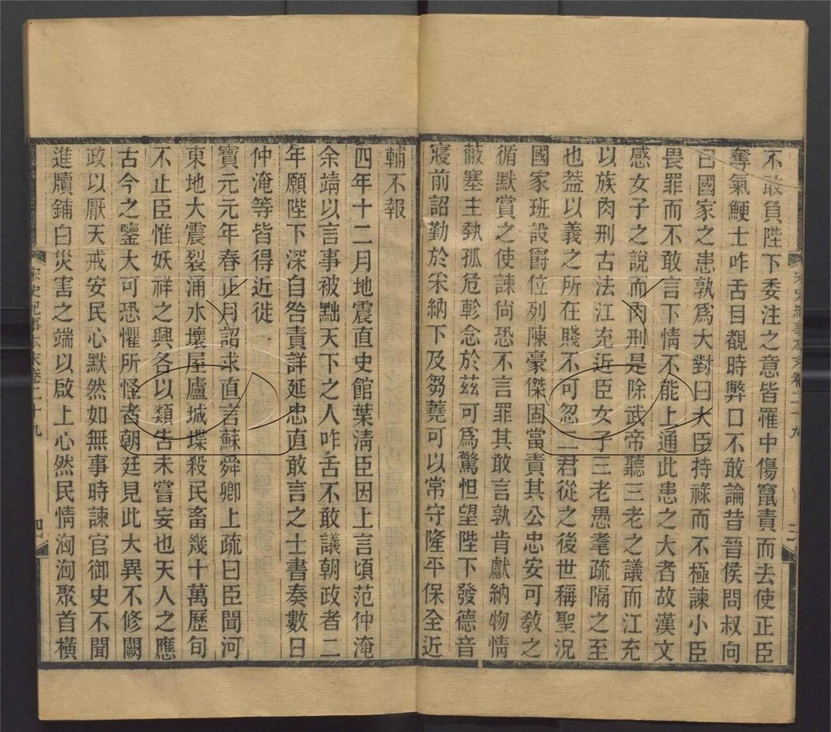 不敢負陛下委注之意皆罹中傷竄責而去使正臣
奪氣鯁士咋舌目覩時弊口不敢論昔晉侯問叔向
曰國家之患孰爲大對曰大臣持祿而不極諫小臣
畏罪而不敢言下情不能上通此患之大者故漢文
感女子之說而肉刑是除武帝聽三老之議而江充
以族肉刑古法江充近臣女子三老愚耄疏隔之至
也蓋以義之所在賤不可忽二君從之後世稱聖況
國家班設爵位列陳豪傑固當責其公忠安可敎之
循默賞之使諫尙恐不言罪其敢言孰肯獻納物情
蔽塞主埶孤危軫念於茲可爲驚怛望陛下發德音
寢前詔勤於采納下及芻蕘可以常守隆平保全近
輔不報
四年十二月地震直史館葉淸臣因上言頃范仲淹
余靖以言事被黜天下之人咋舌不敢議朝政者二
年願陛下深自咎責詳延忠直敢言之士書奏數日
仲淹等皆得近徙
寶元元年春正月詔求直言蘇舜卿上疏曰臣聞河
東地大震裂涌水壞屋廬城堞殺民畜幾十萬歷旬
不止臣惟妖祥之興各以類告未嘗妄也天人之應
古今之鑒大可恐懼所怪者朝廷見此大異不修闕
政以厭天戒安民心默然如無事時諫官御史不聞
進牘鋪白災害之端以啟上心然民情洶洶聚首橫
宋史紀事本末卷二十九
三
宋史紀事本末卷二十九
四